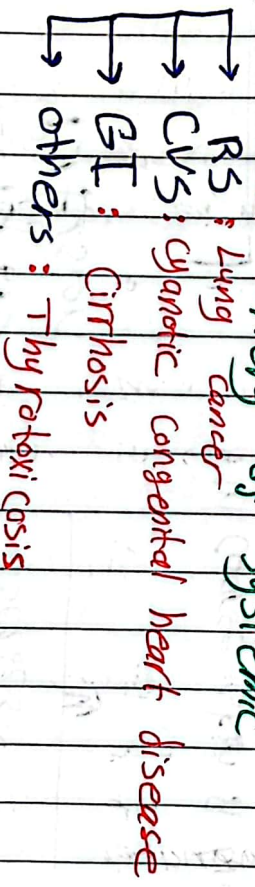 systemic
RS : Lung cancer
CVS : cyanotic congenital heart disease
GI : Cirrhosis
others : Thyrotoxicosis